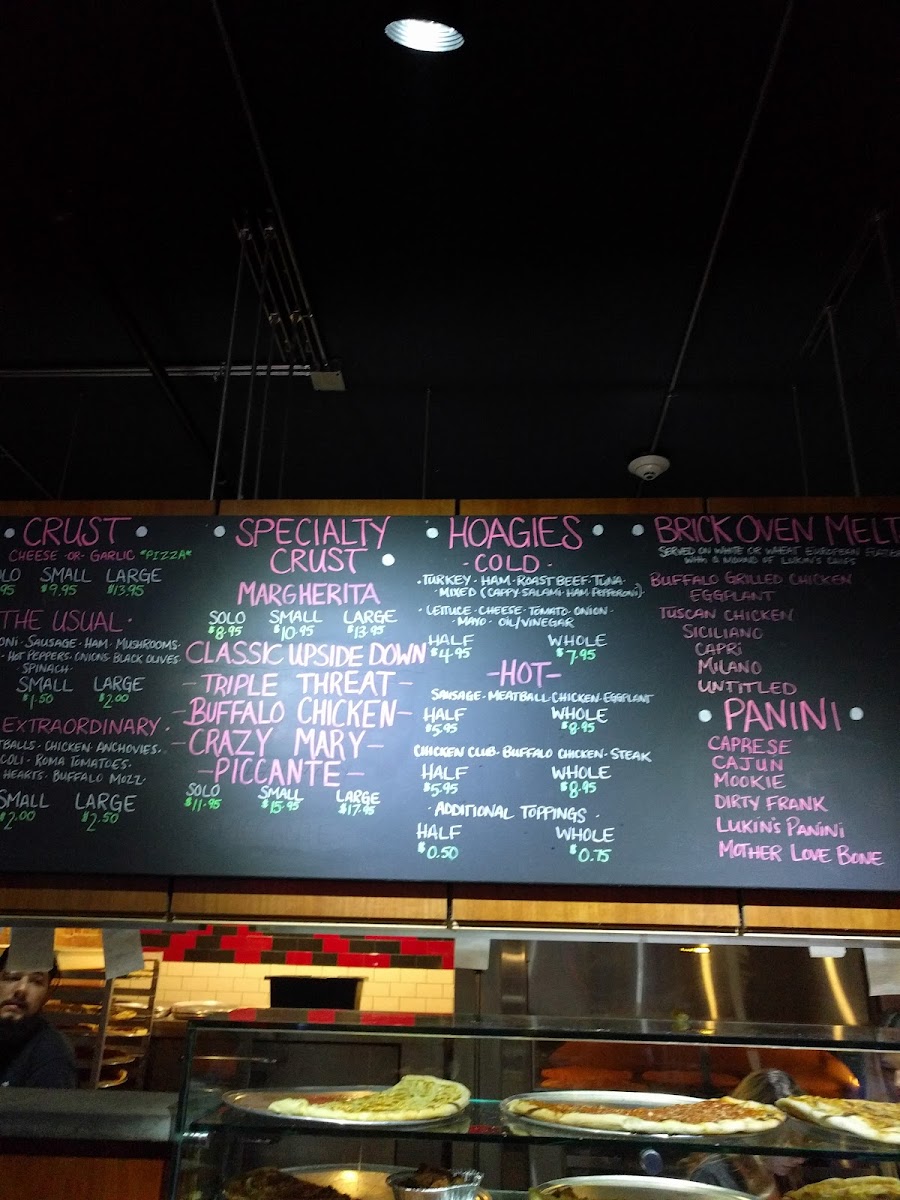 CRUST
CHEESE -OR- GARLIC *PIZZA*
SMALL LARGE
$9.95 $13.95
THE USUAL
SAUSAGE · HAM · MUSHROOMS
HOT PEPPERS · ONIONS · BLACK OLIVES
SPINACH
SMALL LARGE
$1.50 $2.00
EXTRAORDINARY
CHICKEN · ANCHOVIES
ROMA TOMATOES
HEARTS · BUFFALO MOZZ
SMALL LARGE
$2.00 $2.50
SPECIALTY
CRUST
MARGHERITA
SOLO SMALL LARGE
$8.95 $10.95 $13.95
CLASSIC UPSIDE DOWN
-TRIPLE THREAT-
-BUFFALO CHICKEN-
-CRAZY MARY-
-PICCANTE-
SOLO SMALL LARGE
$11.95 $15.95 $17.95
HOAGIES
-COLD-
· TURKEY · HAM · ROAST BEEF · TUNA ·
· MIXED (CAPPY · SALAMI · HAM · PEPPERONI)
· LETTUCE · CHEESE · TOMATO · ONION ·
· MAYO · OIL/VINEGAR
HALF WHOLE
$4.95 $7.95
-HOT-
SAUSAGE · MEATBALL · CHICKEN · EGGPLANT
HALF WHOLE
$5.95 $8.95
CHICKEN CLUB · BUFFALO CHICKEN · STEAK
HALF WHOLE
$5.95 $8.95
· ADDITIONAL TOPPINGS ·
HALF WHOLE
$0.50 $0.75
BRICK OVEN MELT
SERVED ON WHITE OR WHEAT EUROPEAN
WITH A MOUND OF LUKIN'S CHIPS
BUFFALO GRILLED CHICKEN
EGGPLANT
TUSCAN CHICKEN
SICILIANO
CAPRI
MILANO
UNTITLED
PANINI
CAPRESE
CAJUN
MOOKIE
DIRTY FRANK
LUKIN'S PANINI
MOTHER LOVE BONE